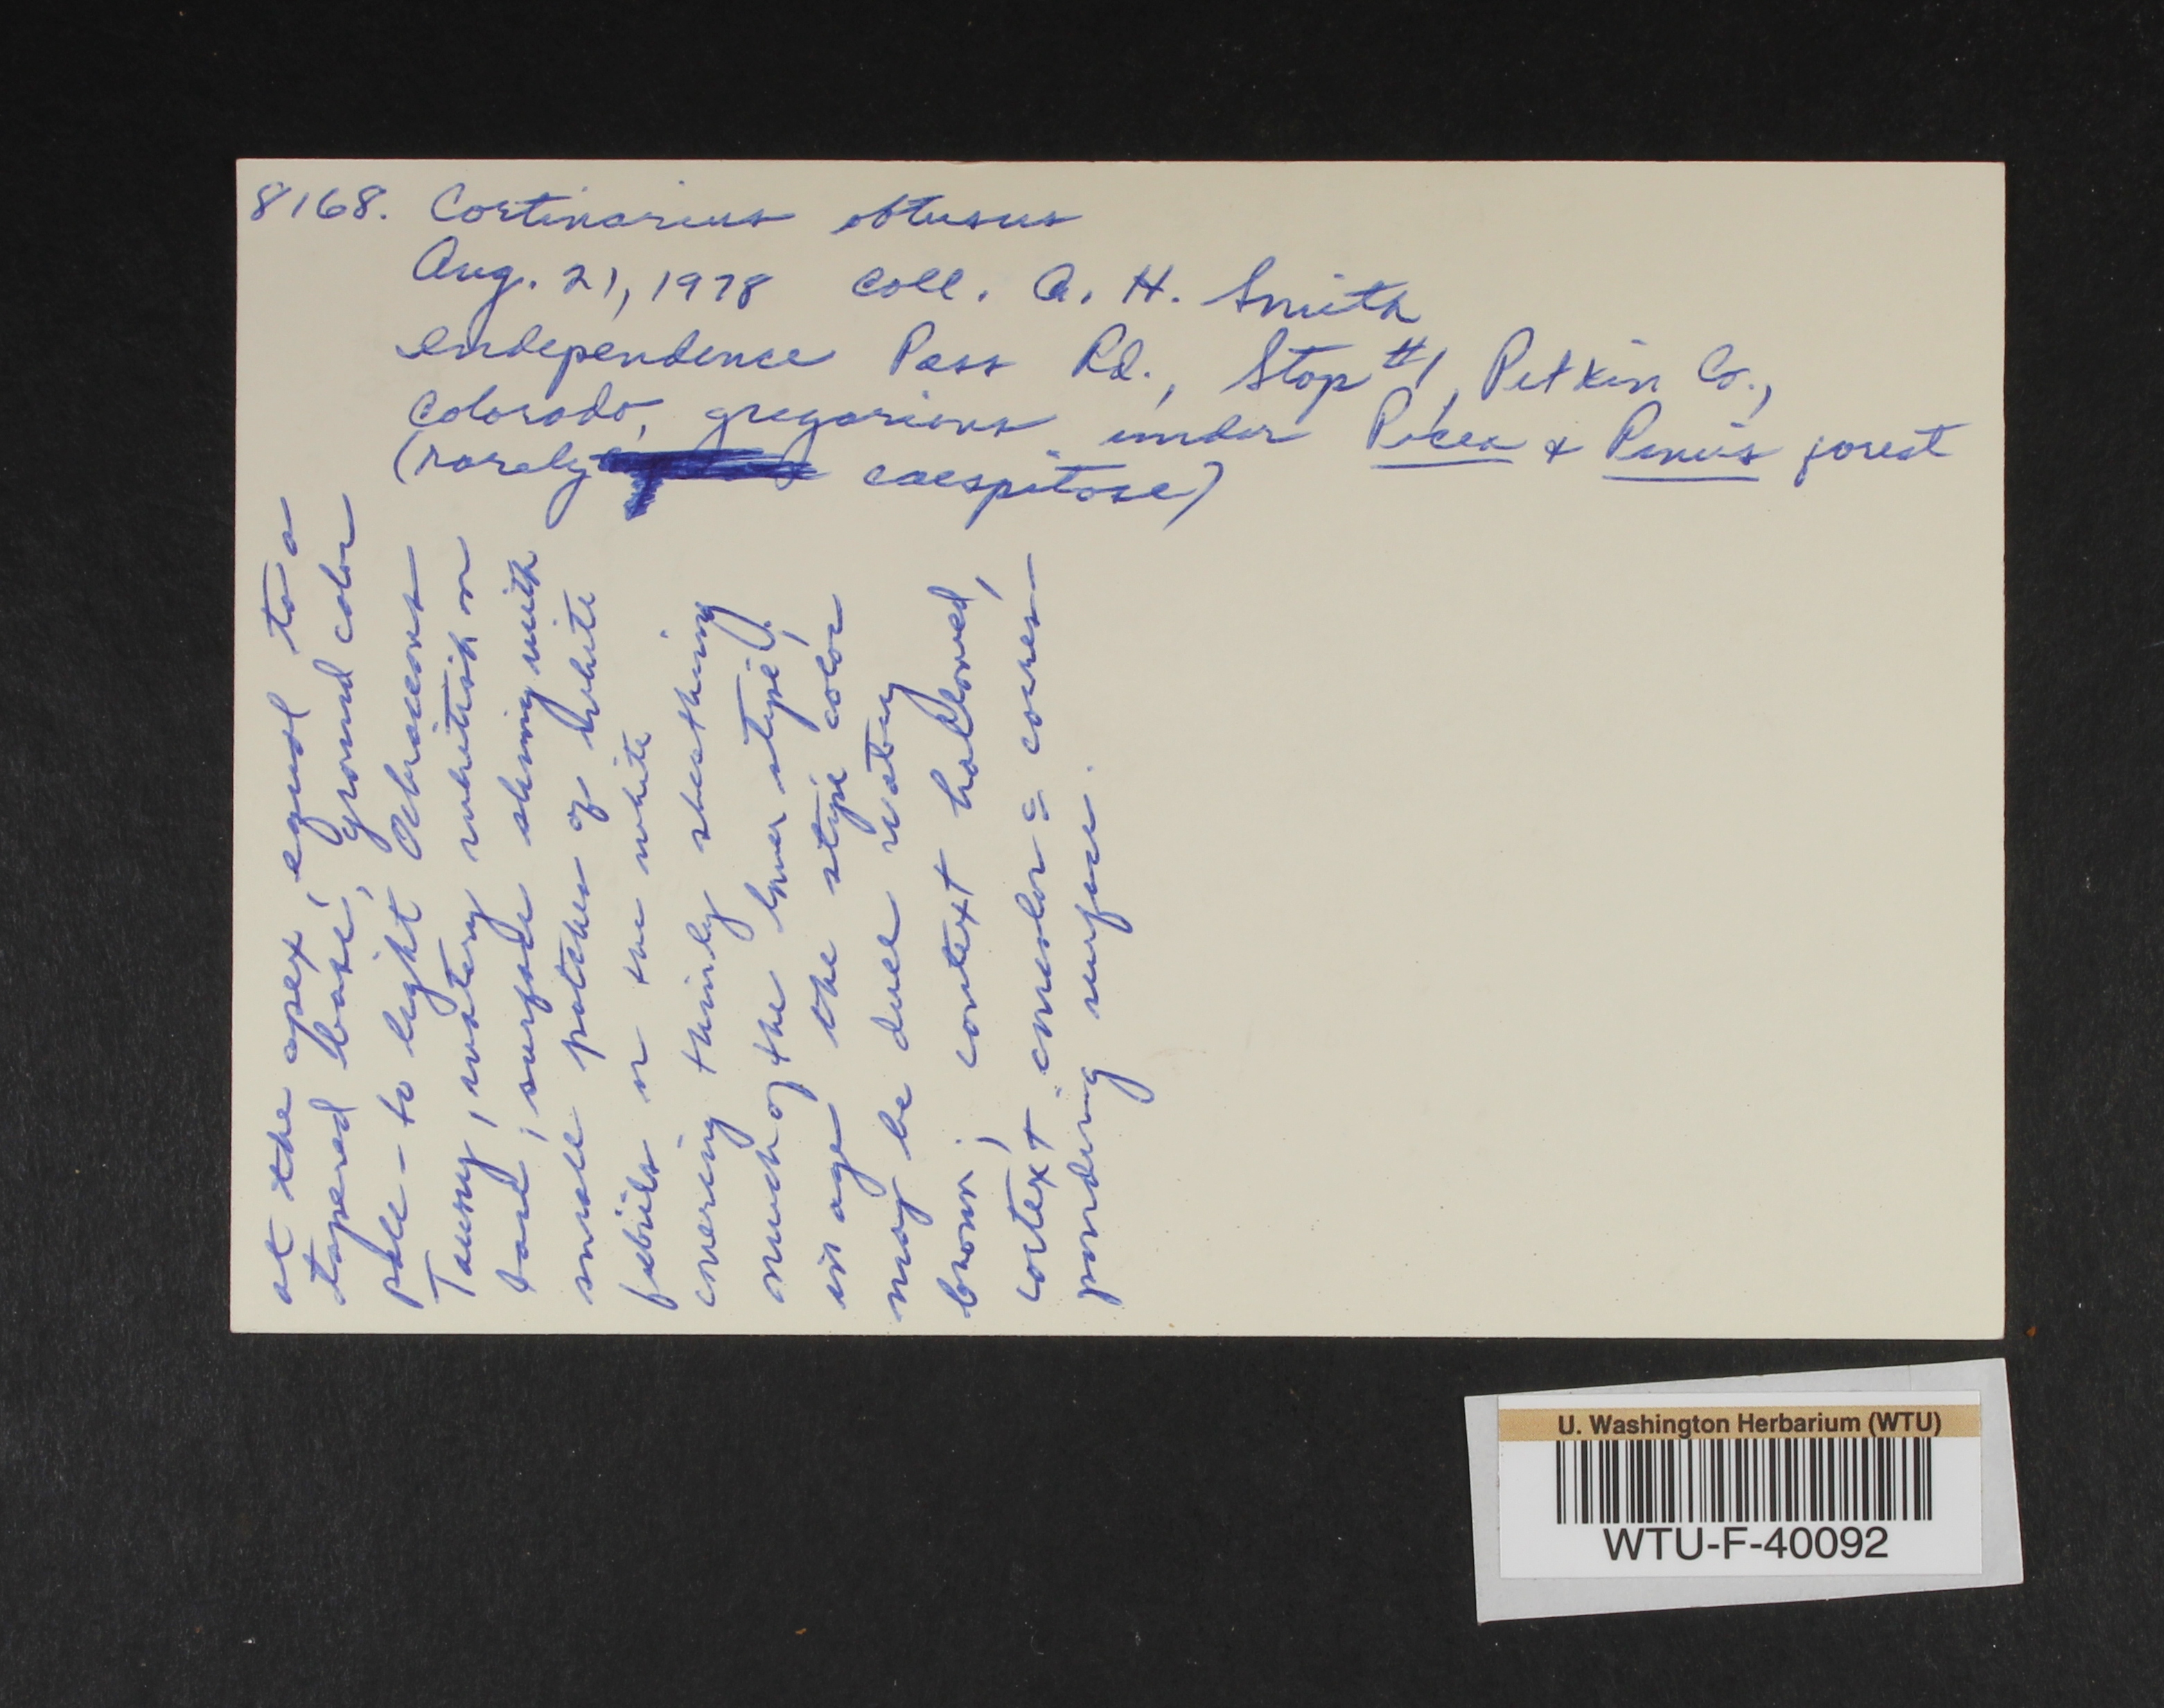 8168. Cortinarius obtusus
Aug. 21, 1978 Coll. A. H. Smith
Independence Pass Rd., Stop #1, Pitkin Co.,
Colorado, gregarious under Picea & Pinus forest
(rarely caespitose)
at the apex, equal to a
tapered base, ground color
pale- to light Ochraceous
Tawny, watery whitish or
surface shiny with
small patches of white
fibrils or the white
covering thinly sheathing
much of the lower stipe,
in age the stipe color
may be dull watery
brown; context hollowed,
cortex concolor c̄ corres-
ponding surface.
U. Washington Herbarium (WTU)
WTU-F-40092